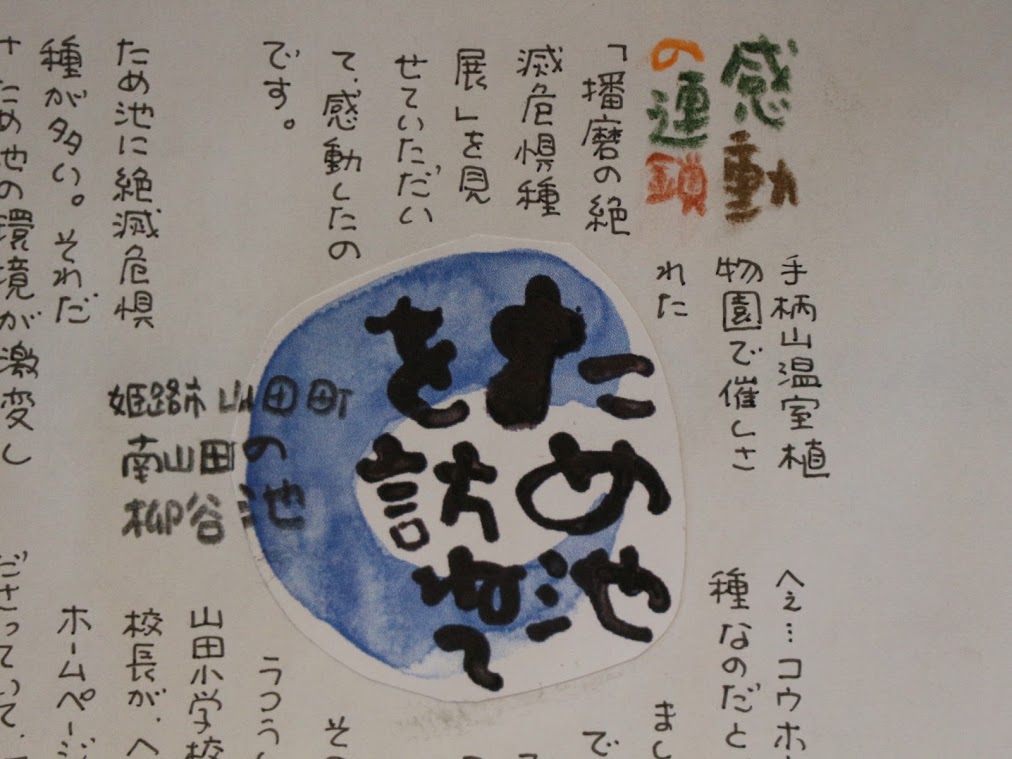 感動
の連鎖
手柄山温室植
物園で催しさ
れた
「播磨の絶
滅危惧種
展」を見
せていただい
て、感動したの
です。
ため池に絶滅危惧
種が多い。それだ
ため池の環境が激変し
ため池
を訪ねて
姫路市山田町
南山田の
柳谷池
へぇ…コウホ
種なのだと
まし
で
そ
うつうし
山田小学校
校長が、へ
ホームページ
ださっていて、